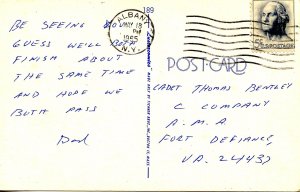 BE SEEING YOU
GUESS WE'LL BOTH
FINISH ABOUT
THE SAME TIME
AND HOPE WE
BOTH PASS
Dad
ALBANY
MAY 18
PM
1965
N.Y.
189
POST CARD
5¢ U.S. POSTAGE
CADET THOMAS BENTLEY
C COMPANY
A. M. A.
FORT DEFIANCE,
VA. 24437